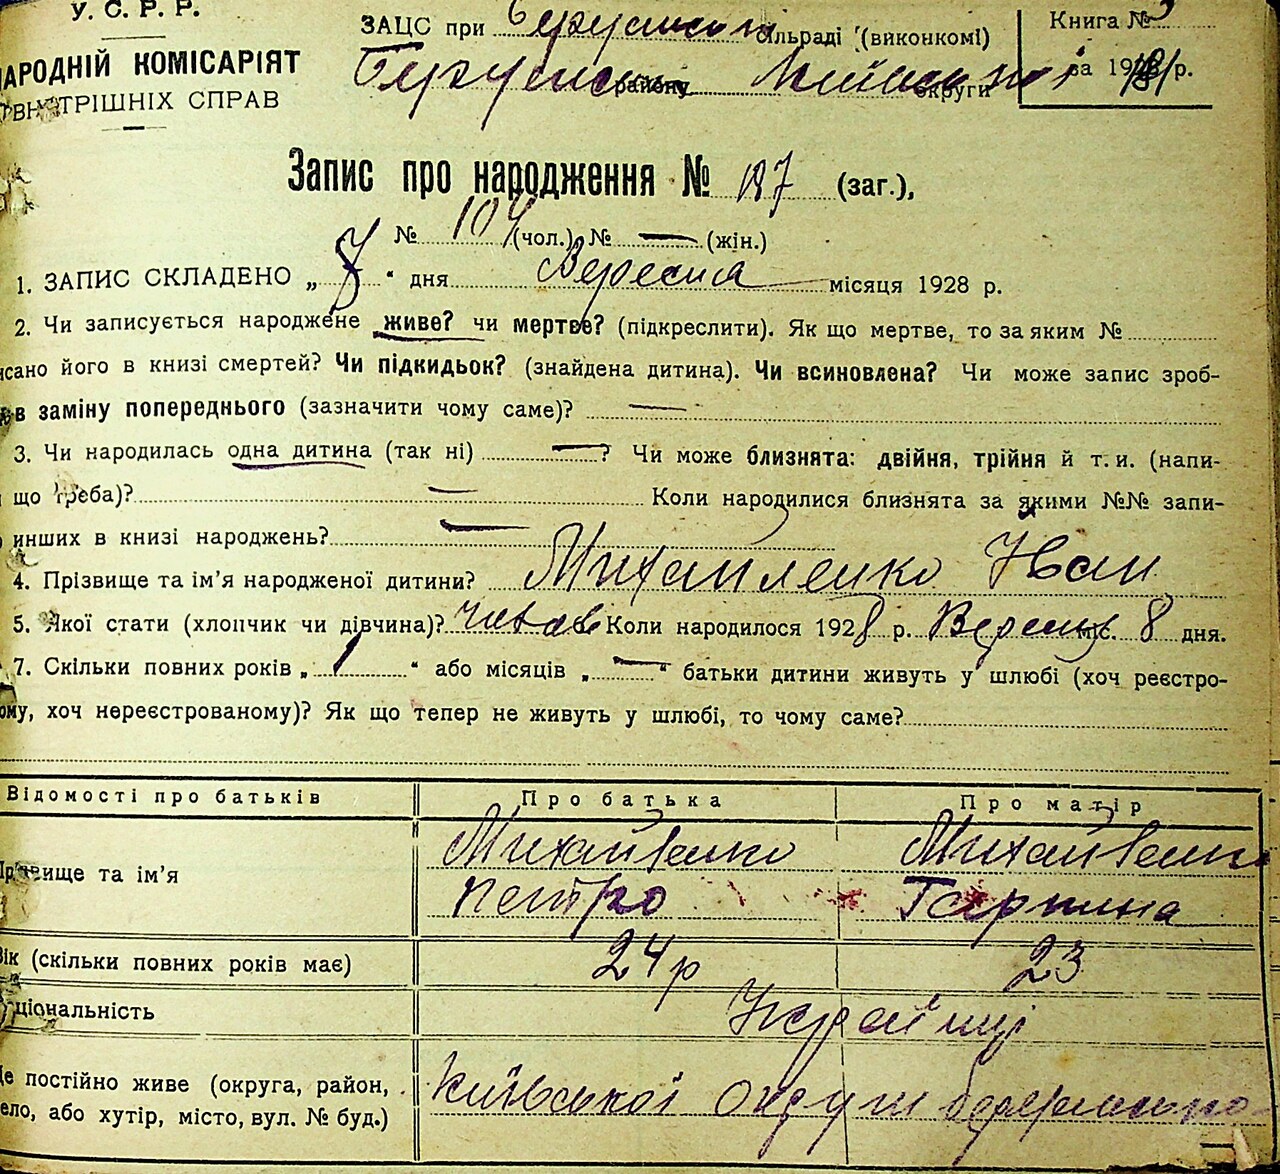 У. С. Р. Р.
НАРОДНІЙ КОМІСАРІЯТ
ВНУТРІШНІХ СПРАВ
ЗАЦС при сільраді (виконкомі)
району округи
Книга №
за 192 р.
Запис про народження № 187 (заг.),
№ 104 (чол.) № — (жін.)
1. ЗАПИС СКЛАДЕНО „ “ дня Вересня місяця 1928 р.
2. Чи записується народжене живе? чи мертве? (підкреслити). Як що мертве, то за яким №
исано його в книзі смертей? Чи підкидьок? (знайдена дитина). Чи всиновлена? Чи може запис зроб-
в заміну попереднього (зазначити чому саме)? —
3. Чи народилась одна дитина (так ні) — ? Чи може близнята: двійня, трійня й т. и. (напи-
що треба)? — Коли народилися близнята за якими №№ запи-
инших в книзі народжень? —
4. Прізвище та ім’я народженої дитини? Михайленко Іван
5. Якої стати (хлопчик чи дівчина)? Коли народилося 1928 р. міс. 8 дня.
7. Скільки повних років „ 1 “ або місяців „ — “ батьки дитини живуть у шлюбі (хоч реєстро-
ому, хоч нереєстрованому)? Як що тепер не живуть у шлюбі, то чому саме?
Відомості про батьків Про батька Про матір
Прізвище та ім’я Михайленко Михайленко
Петро
Вік (скільки повних років має) 24 р 23
Національність Українці
Де постійно живе (округа, район, Київської округи
село, або хутір, місто, вул. № буд.)